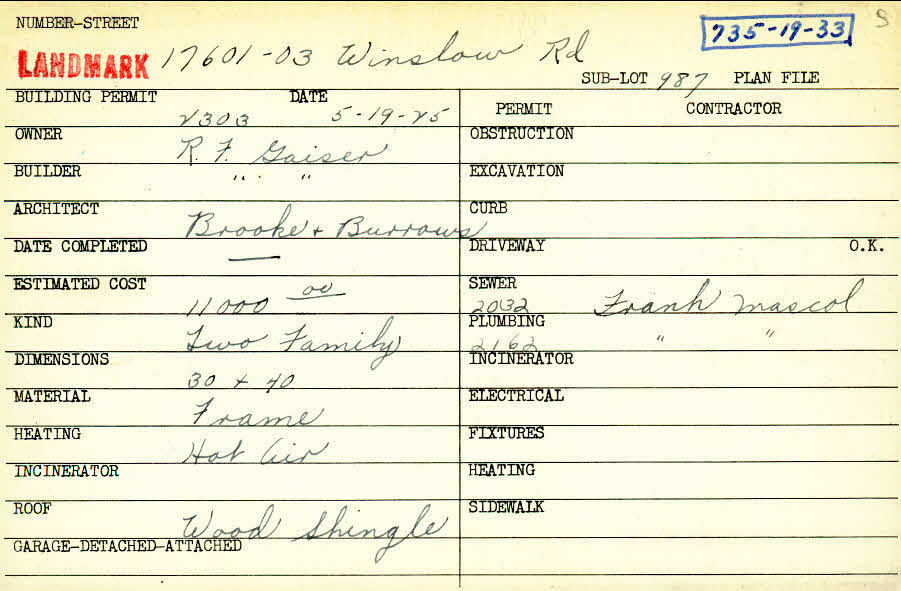 NUMBER-STREET
735-19-33
S
LANDMARK 17601-03 Winslow Rd
SUB-LOT 987 PLAN FILE
BUILDING PERMIT 2303 DATE 5-19-25
PERMIT CONTRACTOR
OWNER R. F. Gaiser
OBSTRUCTION
BUILDER " "
EXCAVATION
ARCHITECT Brooke + Burrows
CURB
DATE COMPLETED —
DRIVEWAY O.K.
ESTIMATED COST 11000 00
SEWER 2032 Frank Mascol
KIND Two Family
PLUMBING 2162 " "
DIMENSIONS 30 x 40
INCINERATOR
MATERIAL Frame
ELECTRICAL
HEATING Hot Air
FIXTURES
INCINERATOR
HEATING
ROOF Wood Shingle
SIDEWALK
GARAGE-DETACHED-ATTACHED